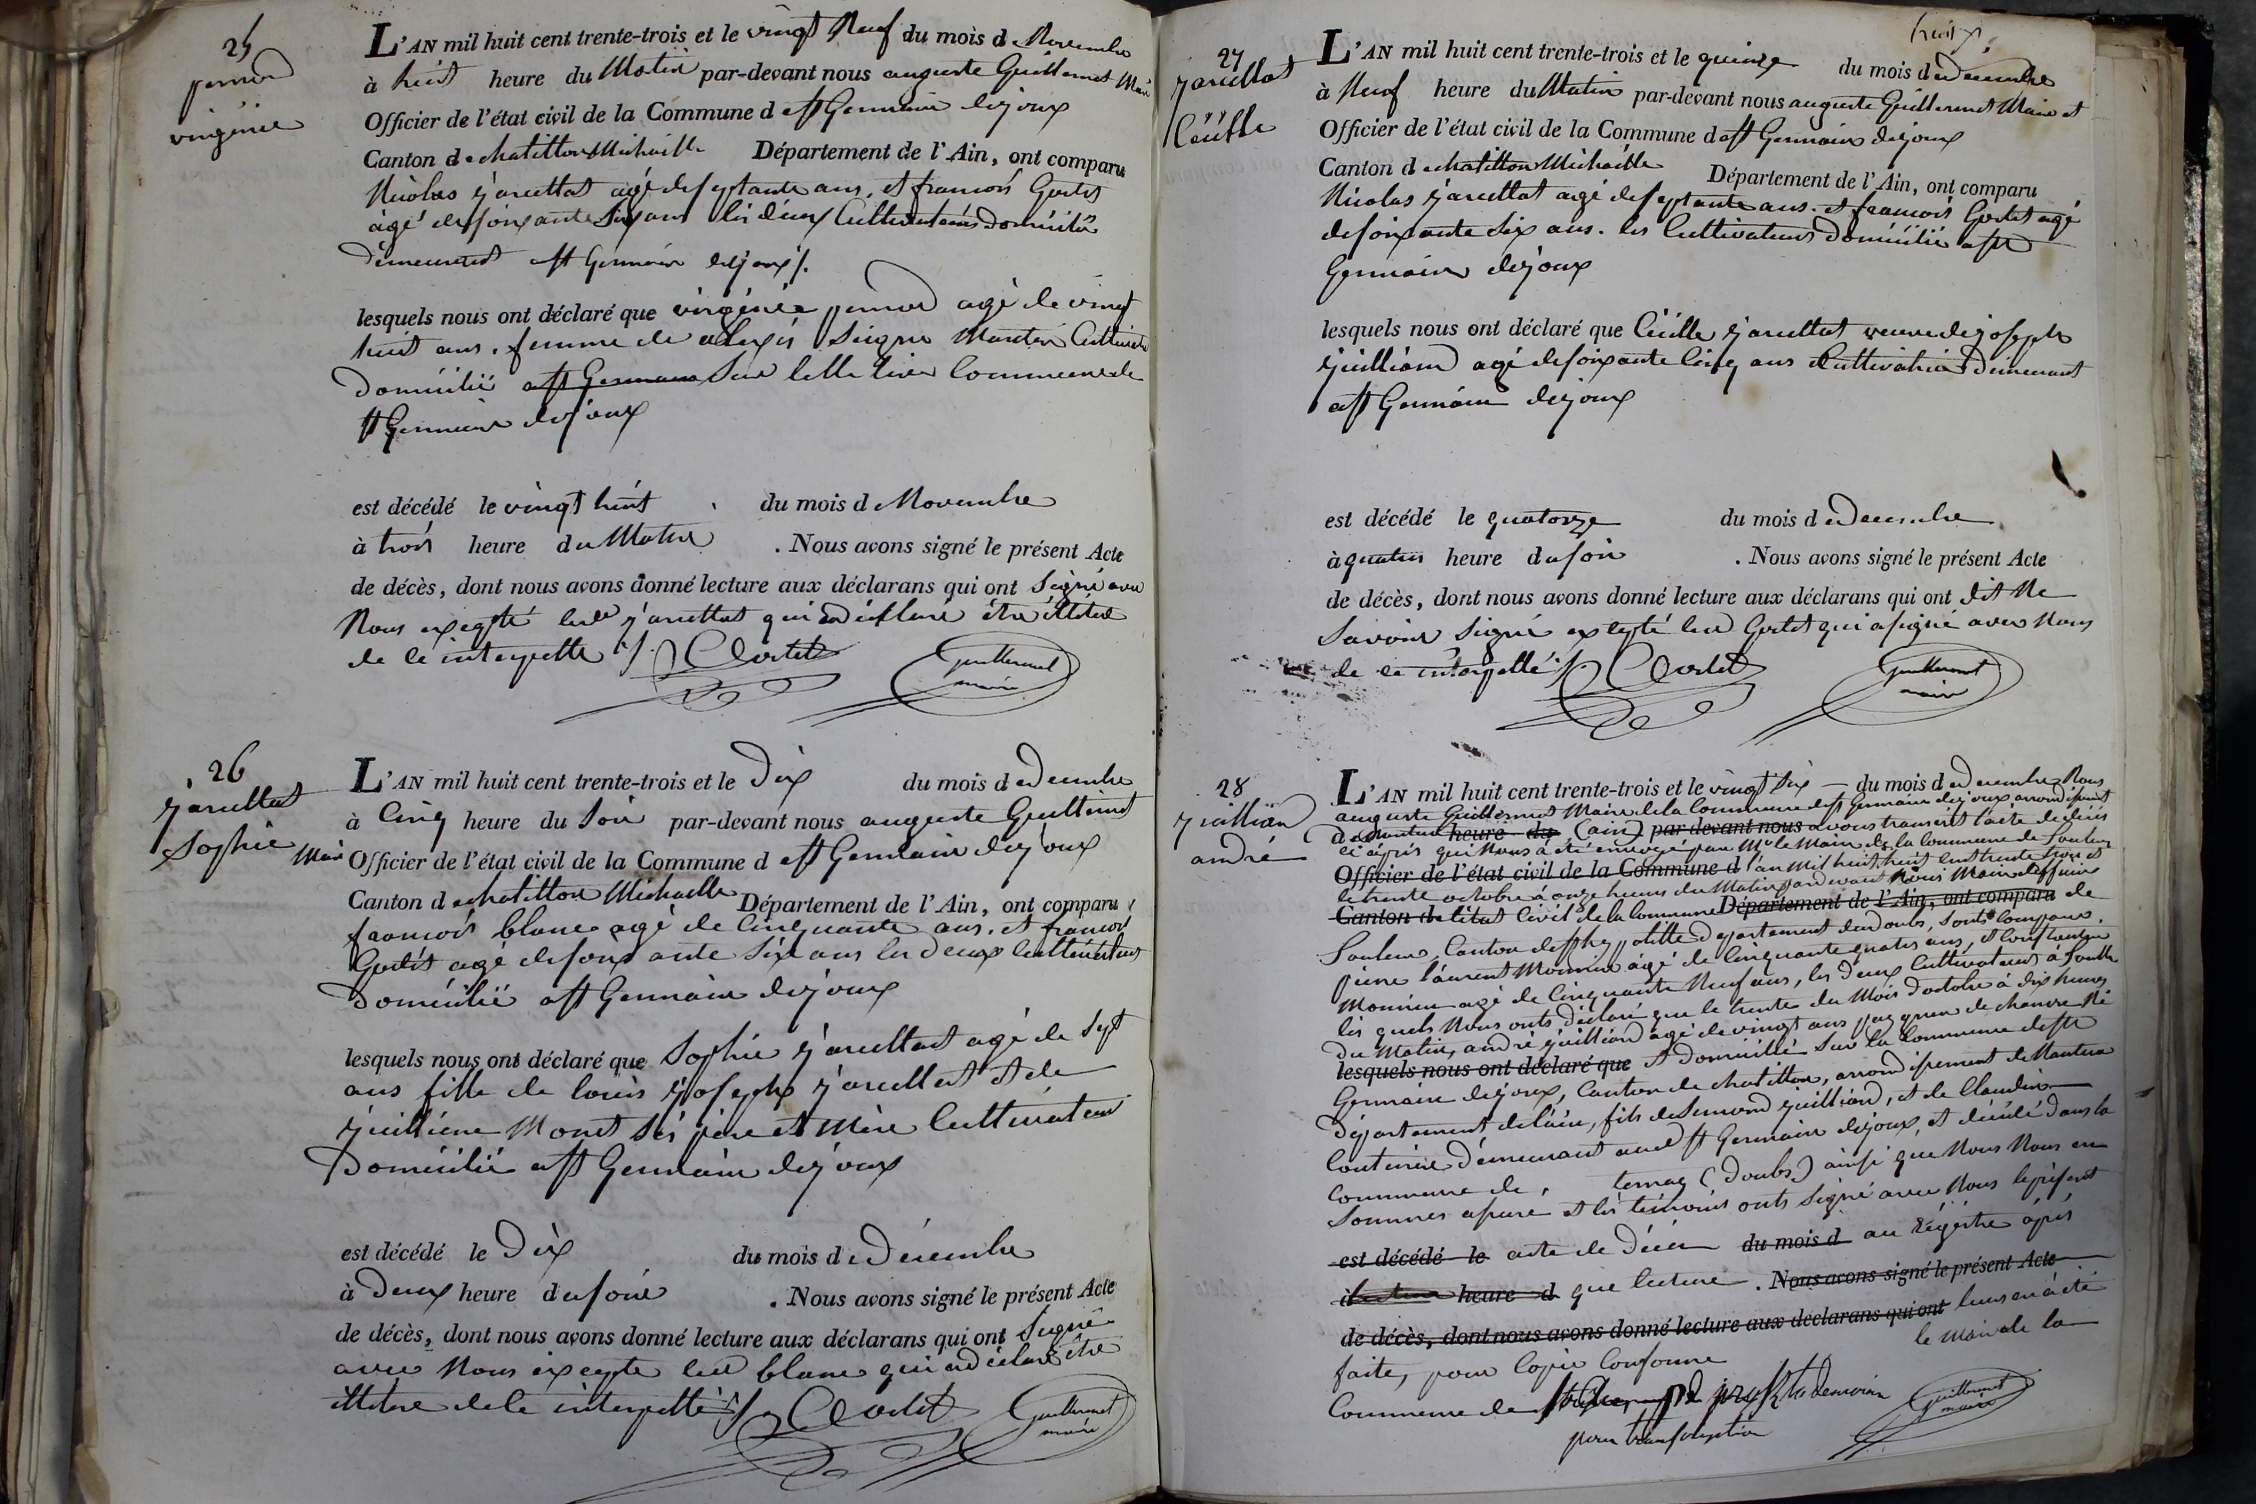 25
pernod
virginie
L'AN mil huit cent trente-trois et le vingt Neuf du mois de Novembre
à huit heure du Matin par-devant nous auguste Guillermet Mair
Officier de l'état civil de la Commune d est Germain dejoux
Canton de chatillon Michaille Département de l'Ain, ont comparu
Nicolas j'arcellat agé de septante ans, et francois Godet
agé de soixante Six ans les deux Cultivateurs domicilié
demeurent a st Germain dejoux /.
lesquels nous ont déclaré que virginie pernod agé de vingt
huit ans, femme de alexis Seigne Martin Cultivateur
domicilié a st Germain Sur Commune de
st Germain dejoux
est décédé le vingt huit du mois de Novembre
à trois heure du Matin . Nous avons signé le présent Acte
de décès, dont nous avons donné lecture aux déclarans qui ont Signé avec
Nous exepté led j'arcellat qui a déclaré être illitéré
de ce interpellé /. Godet Guillermet
maire
26
j'arcellat
Sophie
L'AN mil huit cent trente-trois et le Dix du mois de decembre
à Cinq heure du Soir par-devant nous auguste Guillermet
Mair Officier de l'état civil de la Commune d a st Germain dejoux
Canton de chatillon Michaille Département de l'Ain, ont comparu
francois blanc agé de Cinquante ans, et francois
Godet agé de soixante Six ans les deux Cultivateurs
Domicilié a st Germain dejoux
lesquels nous ont déclaré que Sophie j'arcellat agé de Sept
ans fille de louis joseph j'arcellat et de
Monet Ses père et Mère Cultivateur
Domicilié a st Germain dejoux
est décédé le Dix du mois de Décembre
à Deux heure du soir . Nous avons signé le présent Acte
de décès, dont nous avons donné lecture aux déclarans qui ont Signé
avec Nous exepte led blanc qui a déclaré être
illitéré de ce interpellé /. Godet Guillermet
maire
huit
27
j'arcellat
Cécille
L'AN mil huit cent trente-trois et le quinze du mois de décembre
à Neuf heure du Matin par-devant nous auguste Guillermet Maire et
Officier de l'état civil de la Commune d a st Germain dejoux
Canton de chatillon Michaille Département de l'Ain, ont comparu
Nicolas j'arcellat agé de septante ans. et francois Godet agé
de soixante Six ans. les Cultivateurs domicilié a st
Germain dejoux
lesquels nous ont déclaré que Cécille j'arcellat veuve de joseph
juilliard agé de soixante Cinq ans Cultivatrice demeurant
a st Germain dejoux
est décédé le quatorze du mois de Decembre
à quatre heure du soir . Nous avons signé le présent Acte
de décès, dont nous avons donné lecture aux déclarans qui ont dit Ne
Savoir Signé exsepté led Godet qui a signé avec Nous
de ce interpellé /. Godet Guillermet
maire
28
juilliard
andré
L'AN mil huit cent trente-trois et le vingt Six du mois de decembre Nous
auguste Guillermet Maire de la Commune de st Germain dejoux arrondisement
de Nantua heure du (ain) par devant nous avons transcrit l'acte de décès
ci après qui Nous a été envoyé par Mr le Maire de la Commune de
Officier de l'état civil de la Commune d l'an Mil huit cent trente trois et
le trente octobre à onze heures du Matin par devant Nous Maire officier
Canton de l'état Civil de la Commune Département de l'Ain, ont comparu de
Canton de département du doubs, Sont Comparus.
pierre laurent Monnier agé de Cinquante quatre ans, et
Monnier agé de Cinquante Neuf ans, les deux Cultivateurs à
les quels Nous onts déclaré que le trente du Mois d'octobre à dix heures
du Matin, andré juilliard agé de vingt ans peigneur de chanvre Né
lesquels nous ont déclaré que et domicilié Sur la Commune de st
Germain dejoux, Canton de chatillon, arrondisement de Nantua
Département de l'ain, fils de Simond juilliard, et de Claudine
Couturier demeurant aud st Germain dejoux, et décédé dans la
Commune de , (Doubs) ainsi que Nous Nous en
Sommes assuré et les témoins onts Signé avec Nous le présent
est décédé le acte de Décès du mois d au régistre après
heure d que lecture . Nous avons signé le présent Acte
de décès, dont nous avons donné lecture aux déclarans qui ont leurs en à été
faite, pour Copie Conforme le Maire de la
Commune de
pour transcription Guillermet
maire